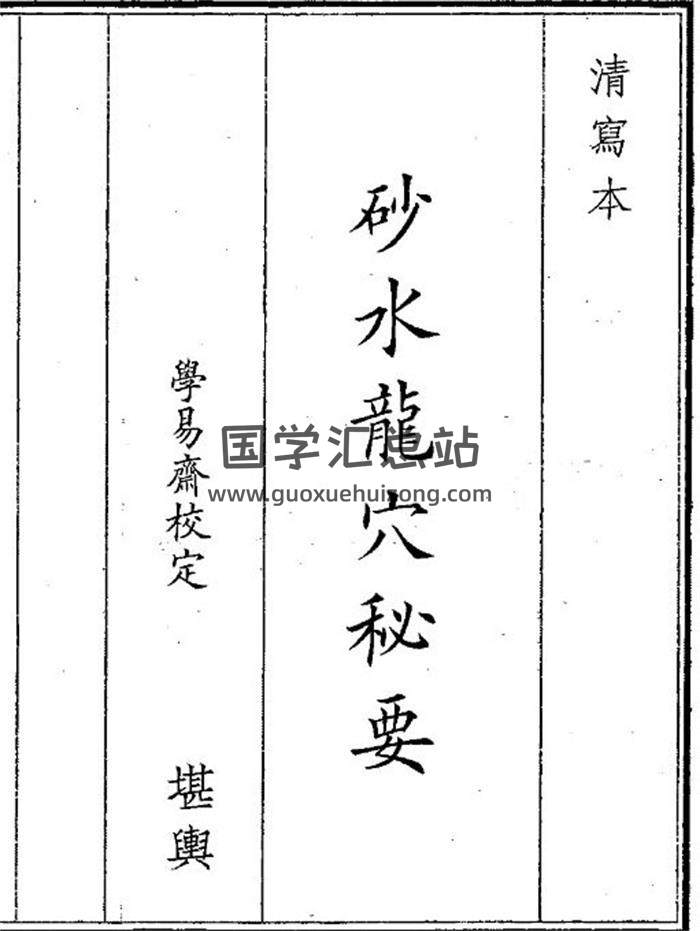 清寫本
砂水龍穴秘要
學易齋校定
堪輿
国学汇总站
www.guoxuehuizong.com